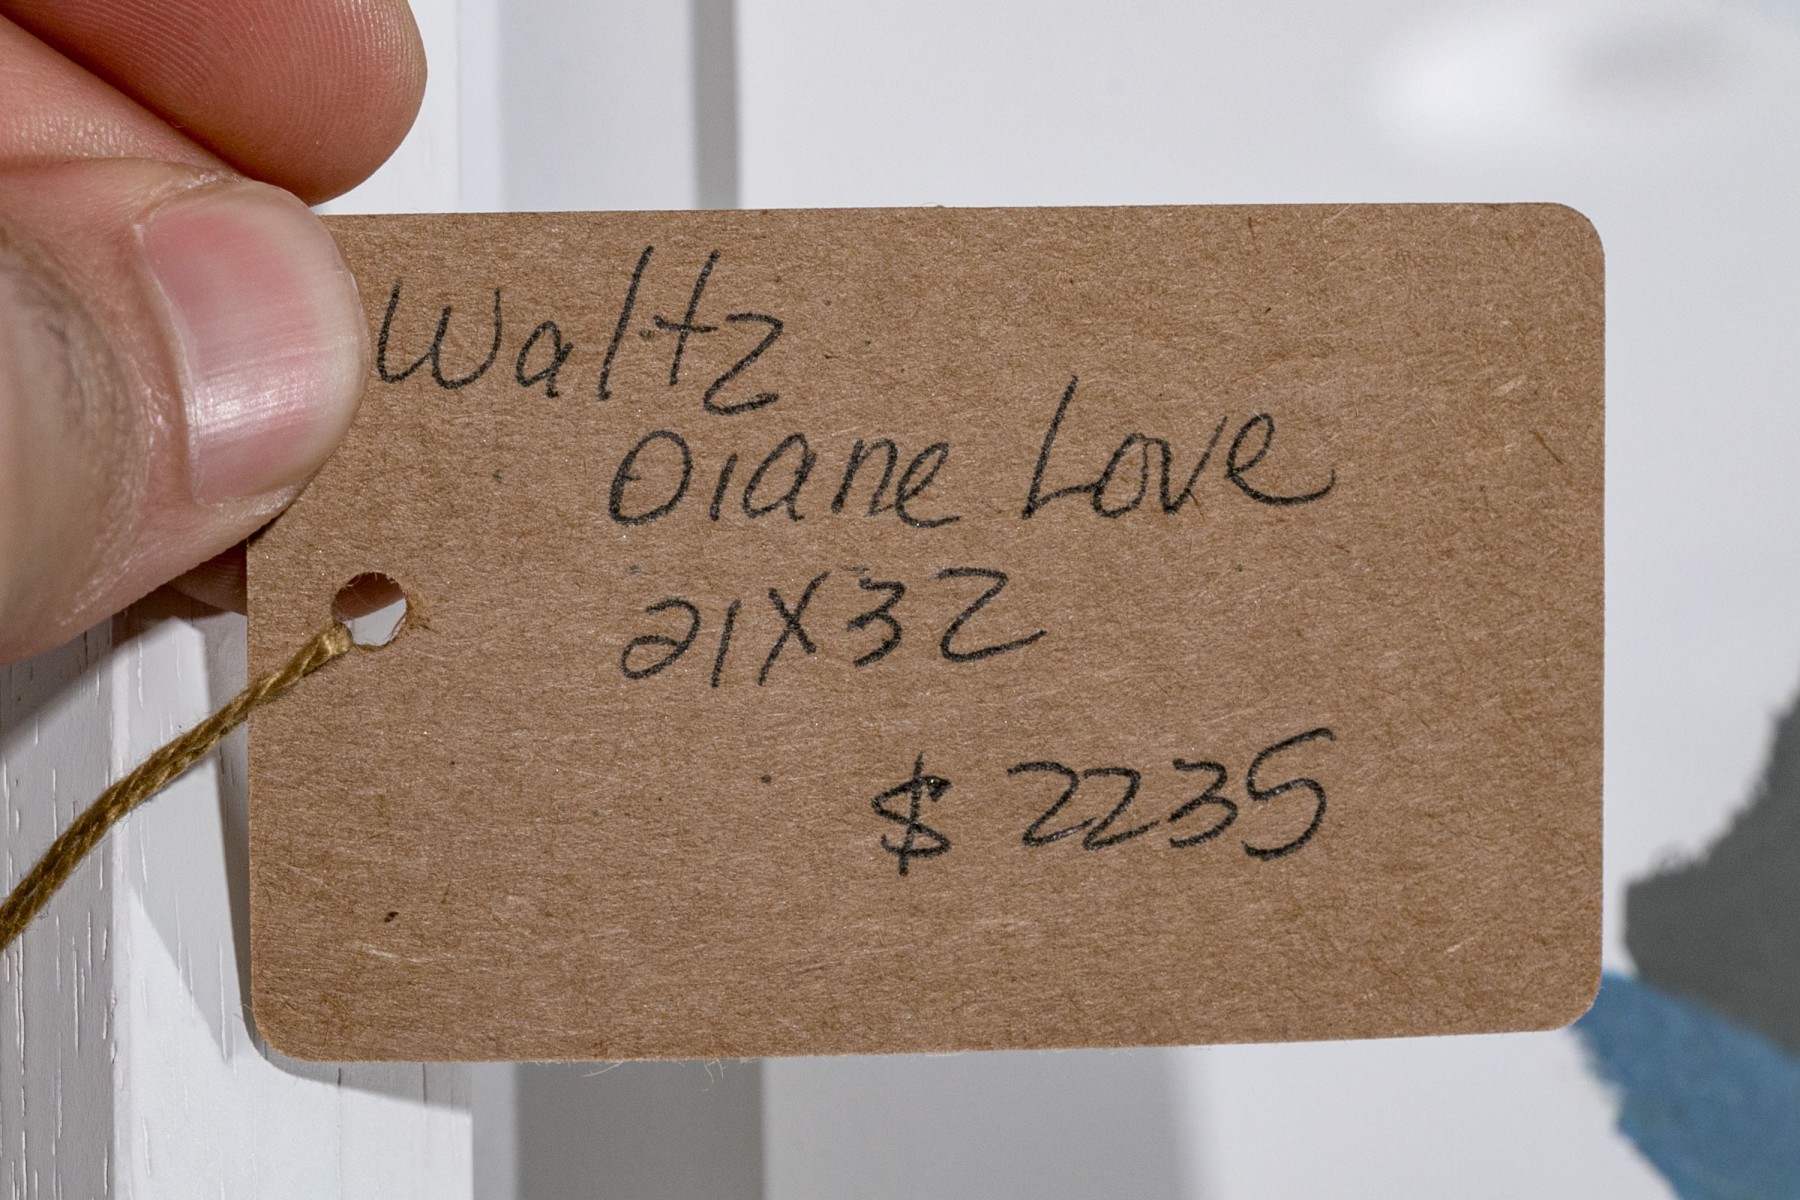 Waltz
Diane Love
21X32
$ 2235